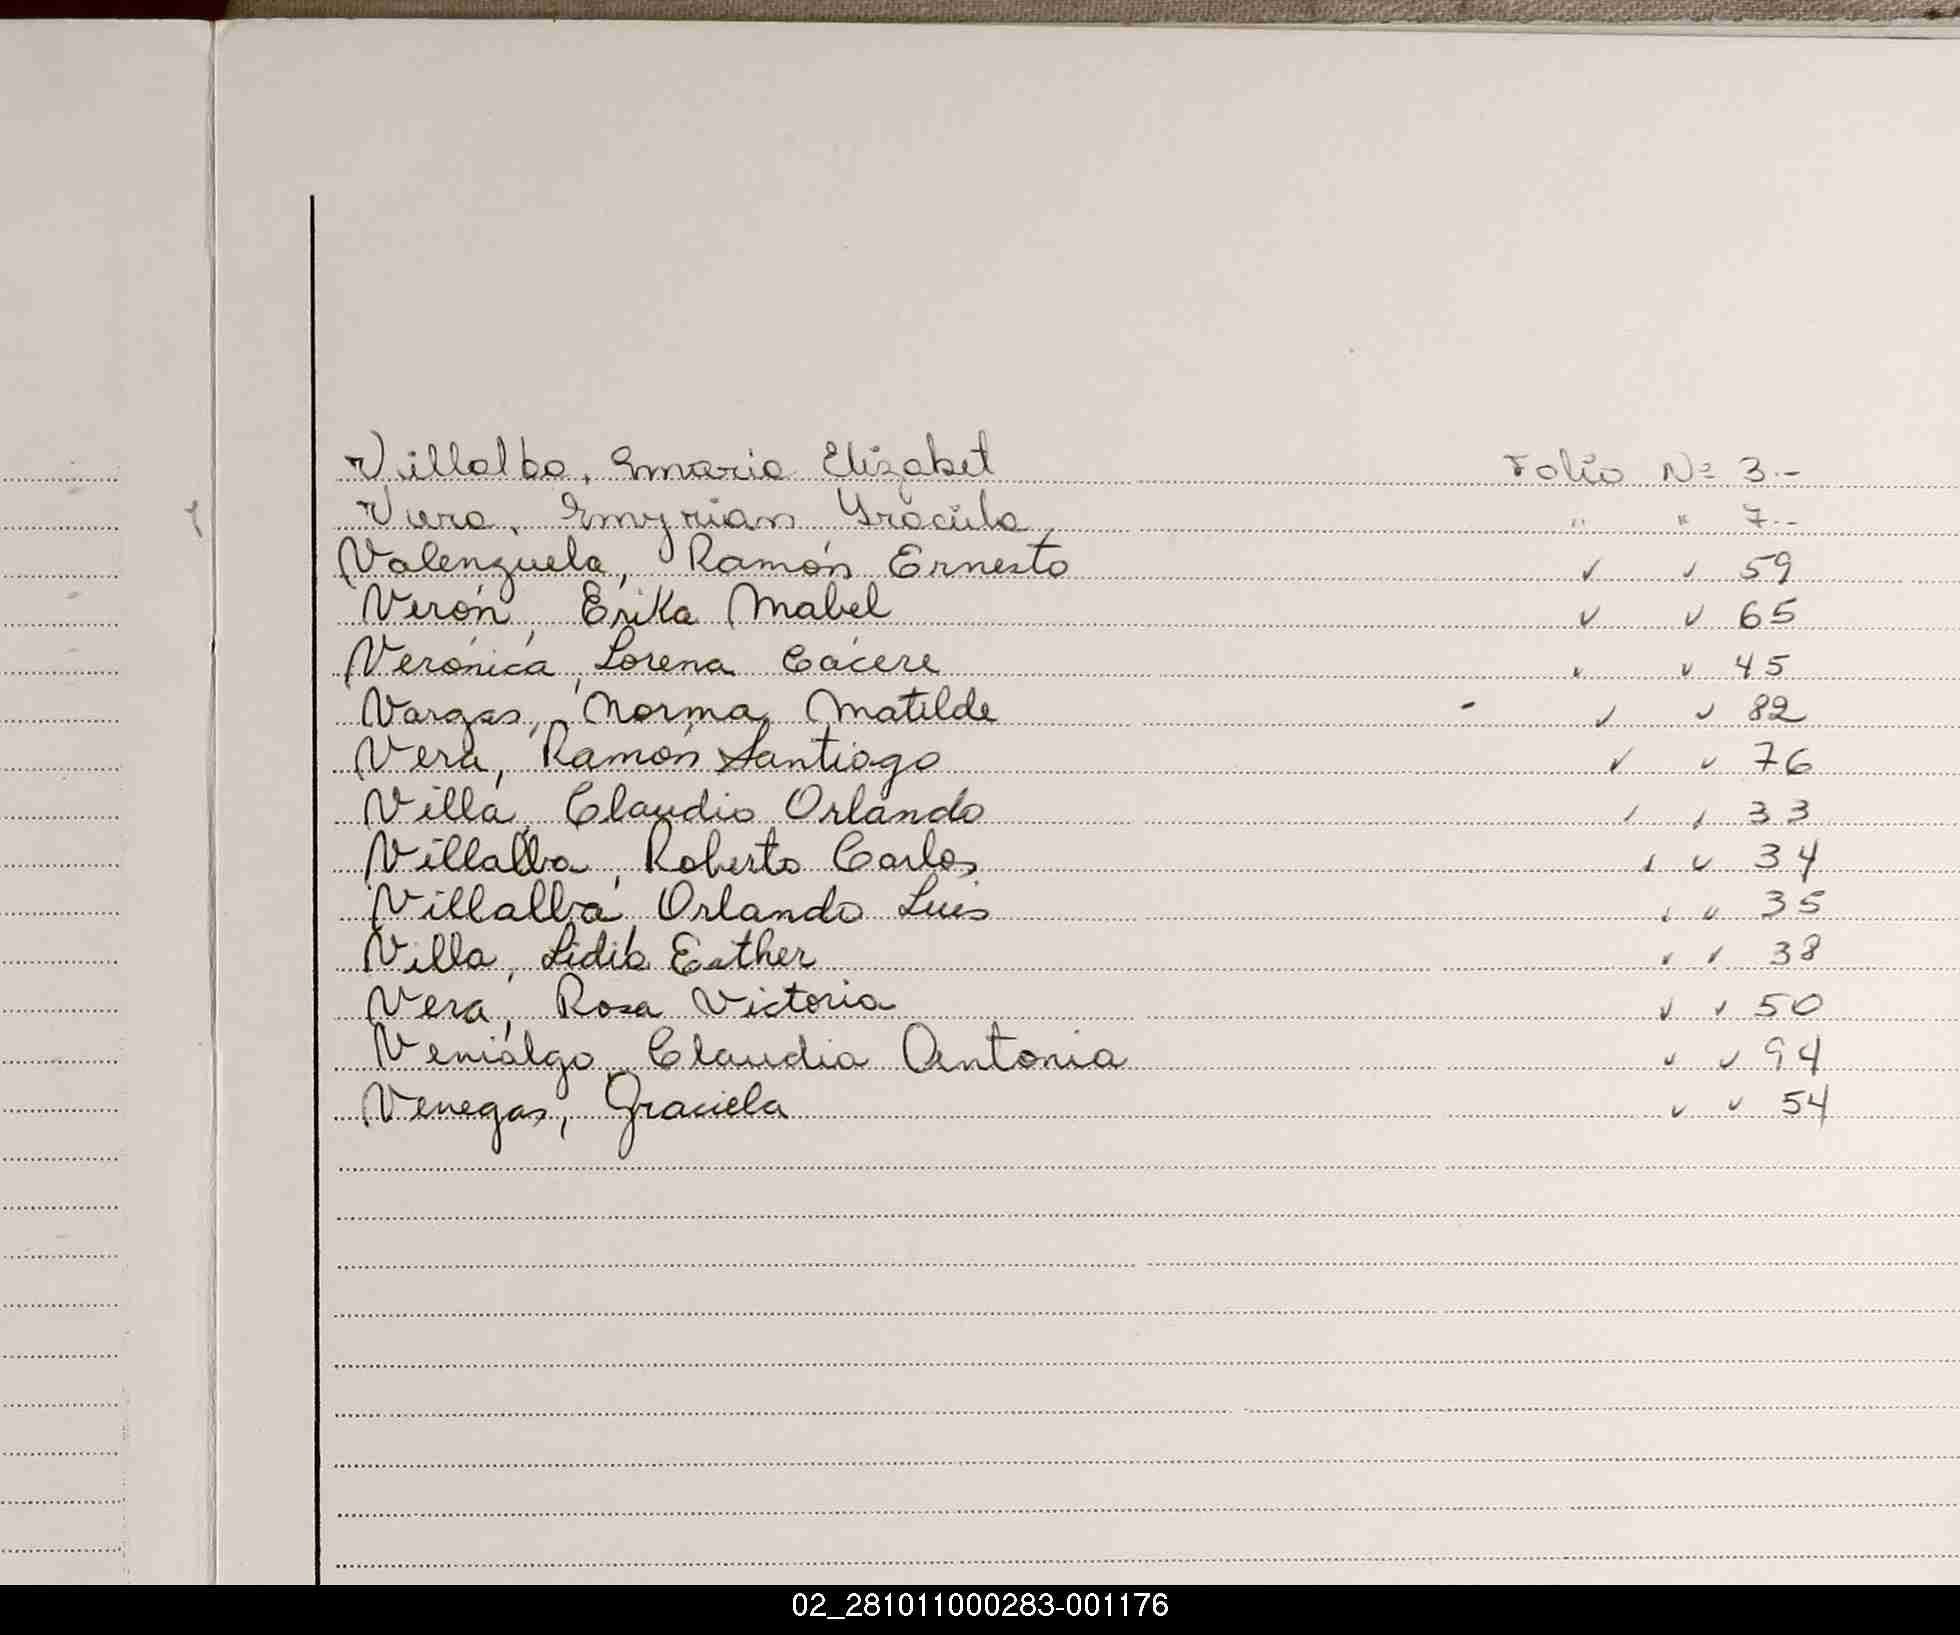 Villalba, Maria Elizabet Folio Nº 3.-
Vera, Myrian Graciela " " 7.-
Valenzuela, Ramón Ernesto " " 59
Verón, Erika Mabel " " 65
Verónica, Lorena Cácere " " 45
Vargas, Norma Matilde - " " 82
Vera, Ramón Santiago " " 76
Villa, Claudio Orlando " " 33
Villalba, Roberto Carlos " " 34
Villalba, Orlando Luis " " 35
Villa, Lidia Esther " " 38
Vera, Rosa Victoria " " 50
Veniálgo, Claudia Antonia " " 94
Venegas, Graciela " " 54
02_281011000283-001176